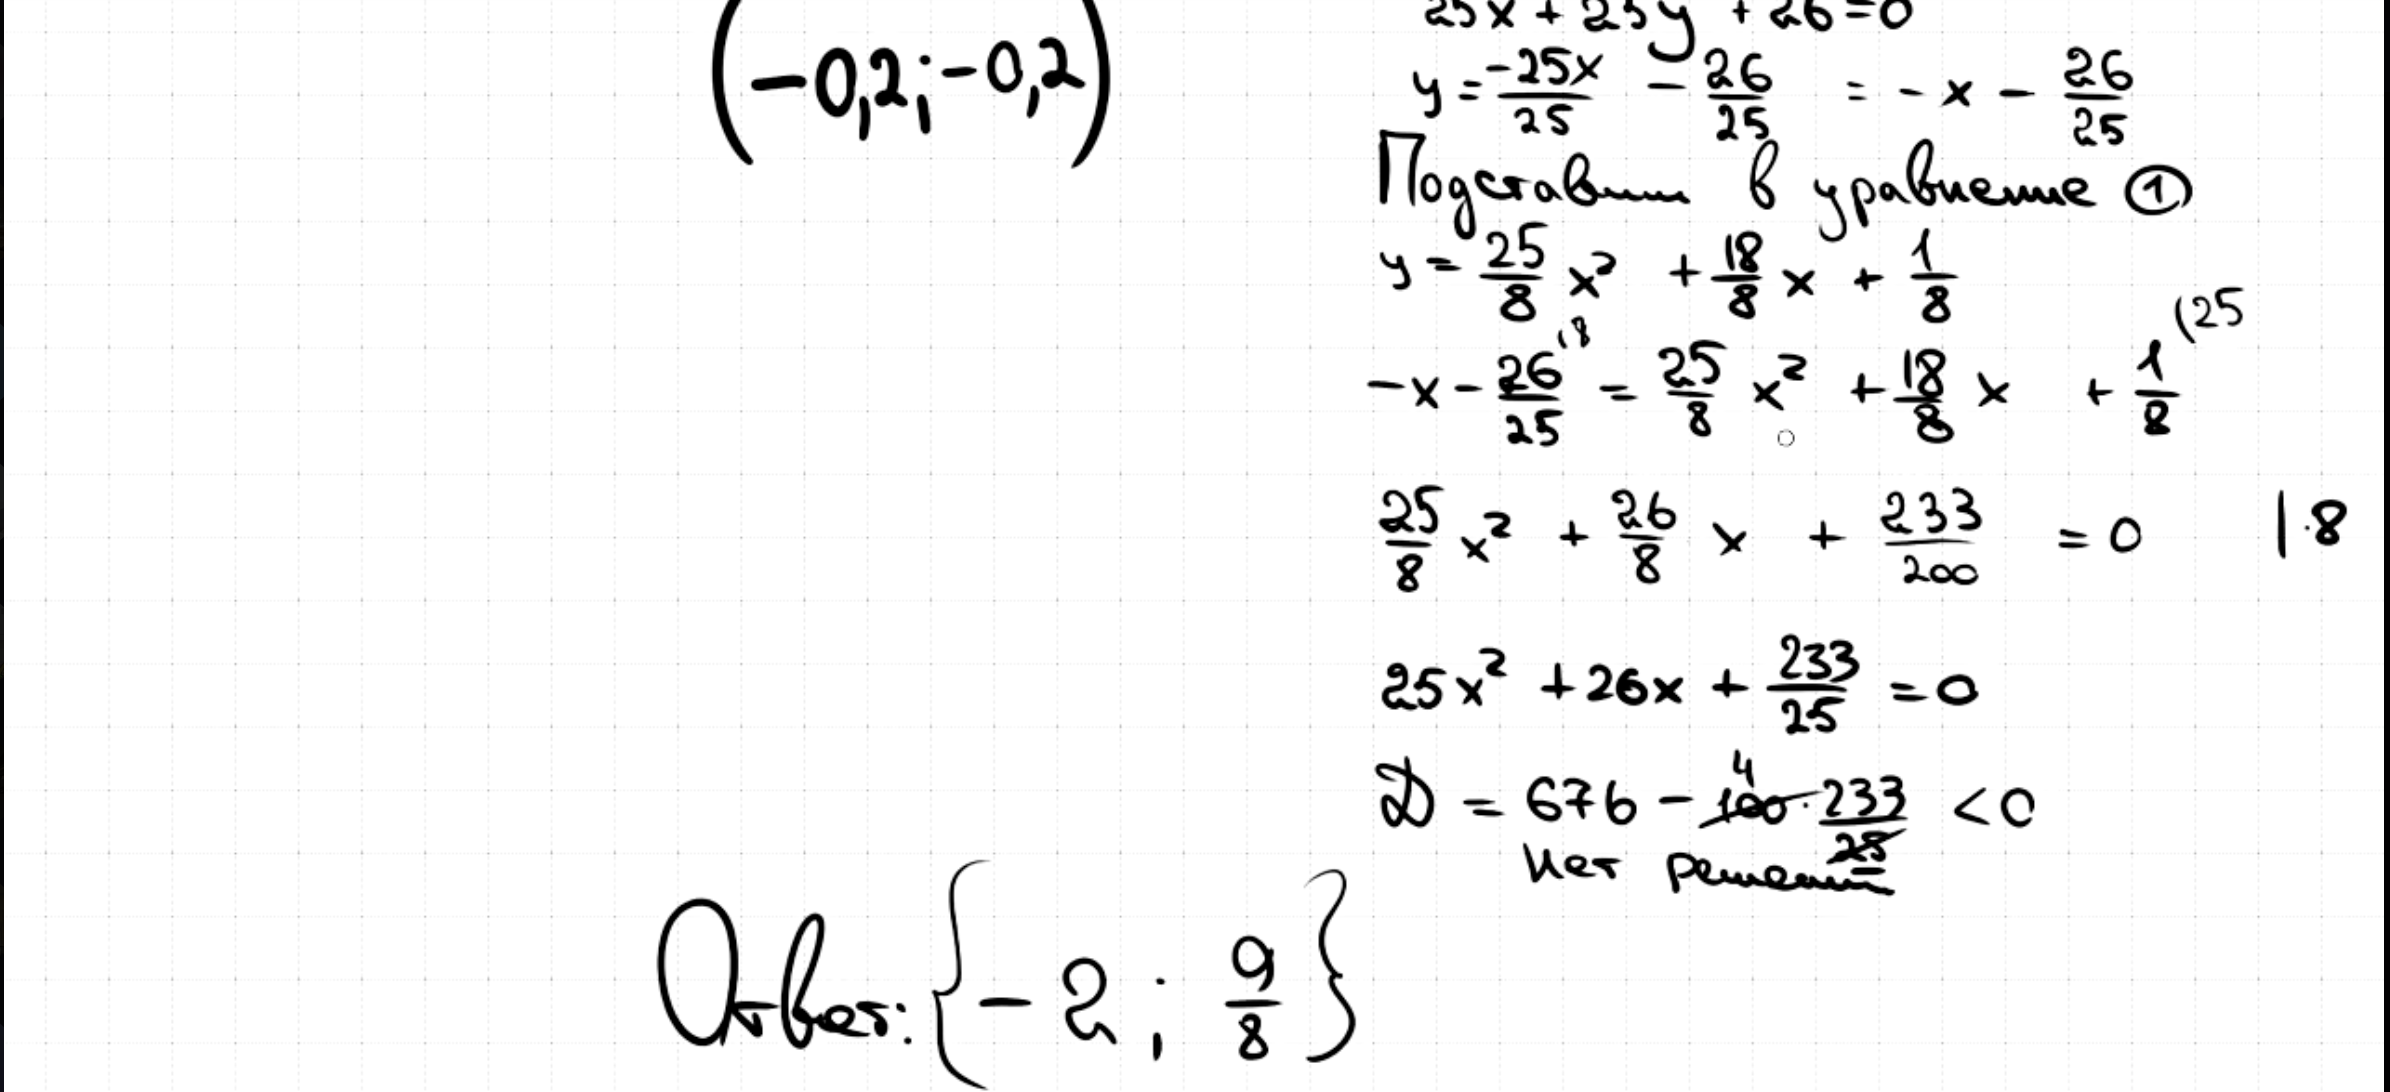 (-0,2; -0,2)
25x + 25y + 26 = 0
y = -25x/25 - 26/25 = -x - 26/25
Подставим в уравнение ①
y = 25/8 x² + 18/8 x + 1/8
-x - 26/25 (8 = 25/8 x² + 18/8 x + 1/8 (25
25/8 x² + 26/8 x + 233/200 = 0 | ·8
25x² + 26x + 233/25 = 0
D = 676 - 100 4 · 233/25 < 0
нет решений
Ответ: {-2; 9/8}